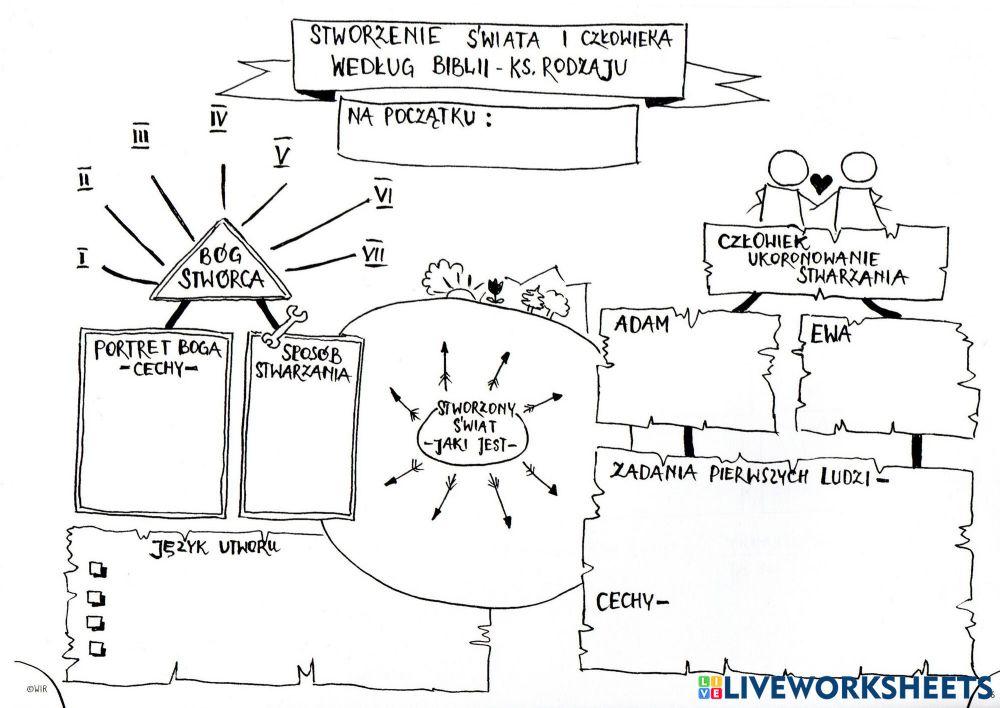 STWORZENIE ŚWIATA I CZŁOWIEKA
WEDŁUG BIBLII - KS. RODZAJU
NA POCZĄTKU :
I
II
III
IV
V
VI
VII
BÓG
STWÓRCA
PORTRET BOGA
-CECHY-
SPOSÓB
STWARZANIA
STWORZONY
ŚWIAT
-JAKI JEST-
CZŁOWIEK
UKORONOWANIE
STWARZANIA
ADAM
EWA
ZADANIA PIERWSZYCH LUDZI -
CECHY-
JĘZYK UTWORU
©WIR
LIVE LIVEWORKSHEETS